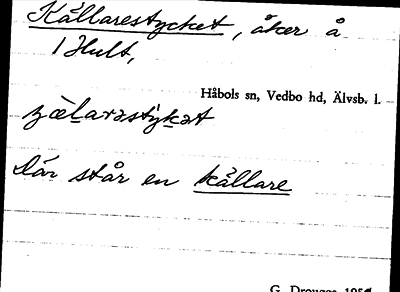 Källarestycket, åker å
1 Hult,
Håbols sn, Vedbo hd, Älvsb. l.
Där står en källare
G. Drougge